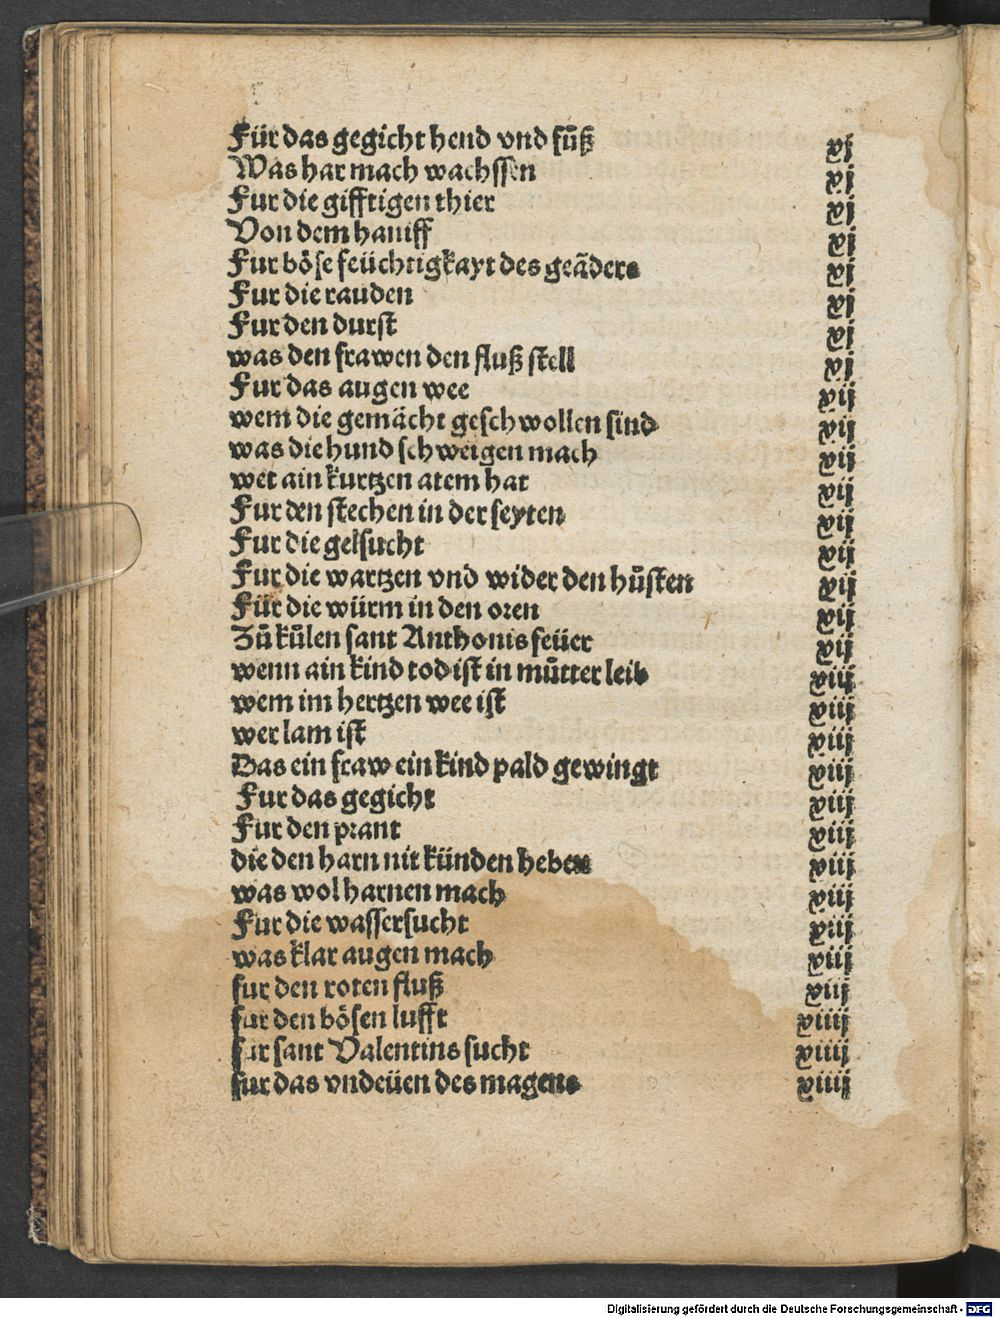 Für das gegicht hend vnd fůß xj
Was har mach wachssen xj
Fur die gifftigen thier xj
Von dem haniff xj
Fur böse feüchtigkayt des geäders xj
Fur die rauden xj
Fur den durst xj
was den frawen den fluß stell xj
Fur das augen wee xij
wem die gemächt geschwollen sind xij
was die hund schweigen mach xij
wer ain kurtzen atem hat xij
Fur den stechen in der seyten xij
Fur die gelsucht xij
Fur die wartzen vnd wider den hůsten xij
Für die würm in den oren xij
Zů kůlen sant Anthonis feüer xij
wenn ain kind tod ist in můtter leib xiij
wem im hertzen wee ist xiij
wer lam ist xiij
Das ein fraw ein kind pald gewingt xiij
Fur das gegicht xiij
Fur den prant xiij
die den harn nit künden heben xiij
was wol harnen mach xiij
Fur die wassersucht xiij
was klar augen mach xiij
fur den roten fluß xiij
fur den bösen lufft xiiij
fur sant Valentins sucht xiiij
fur das vndeüen des magens xiiij
Digitalisierung gefördert durch die Deutsche Forschungsgemeinschaft - DFG